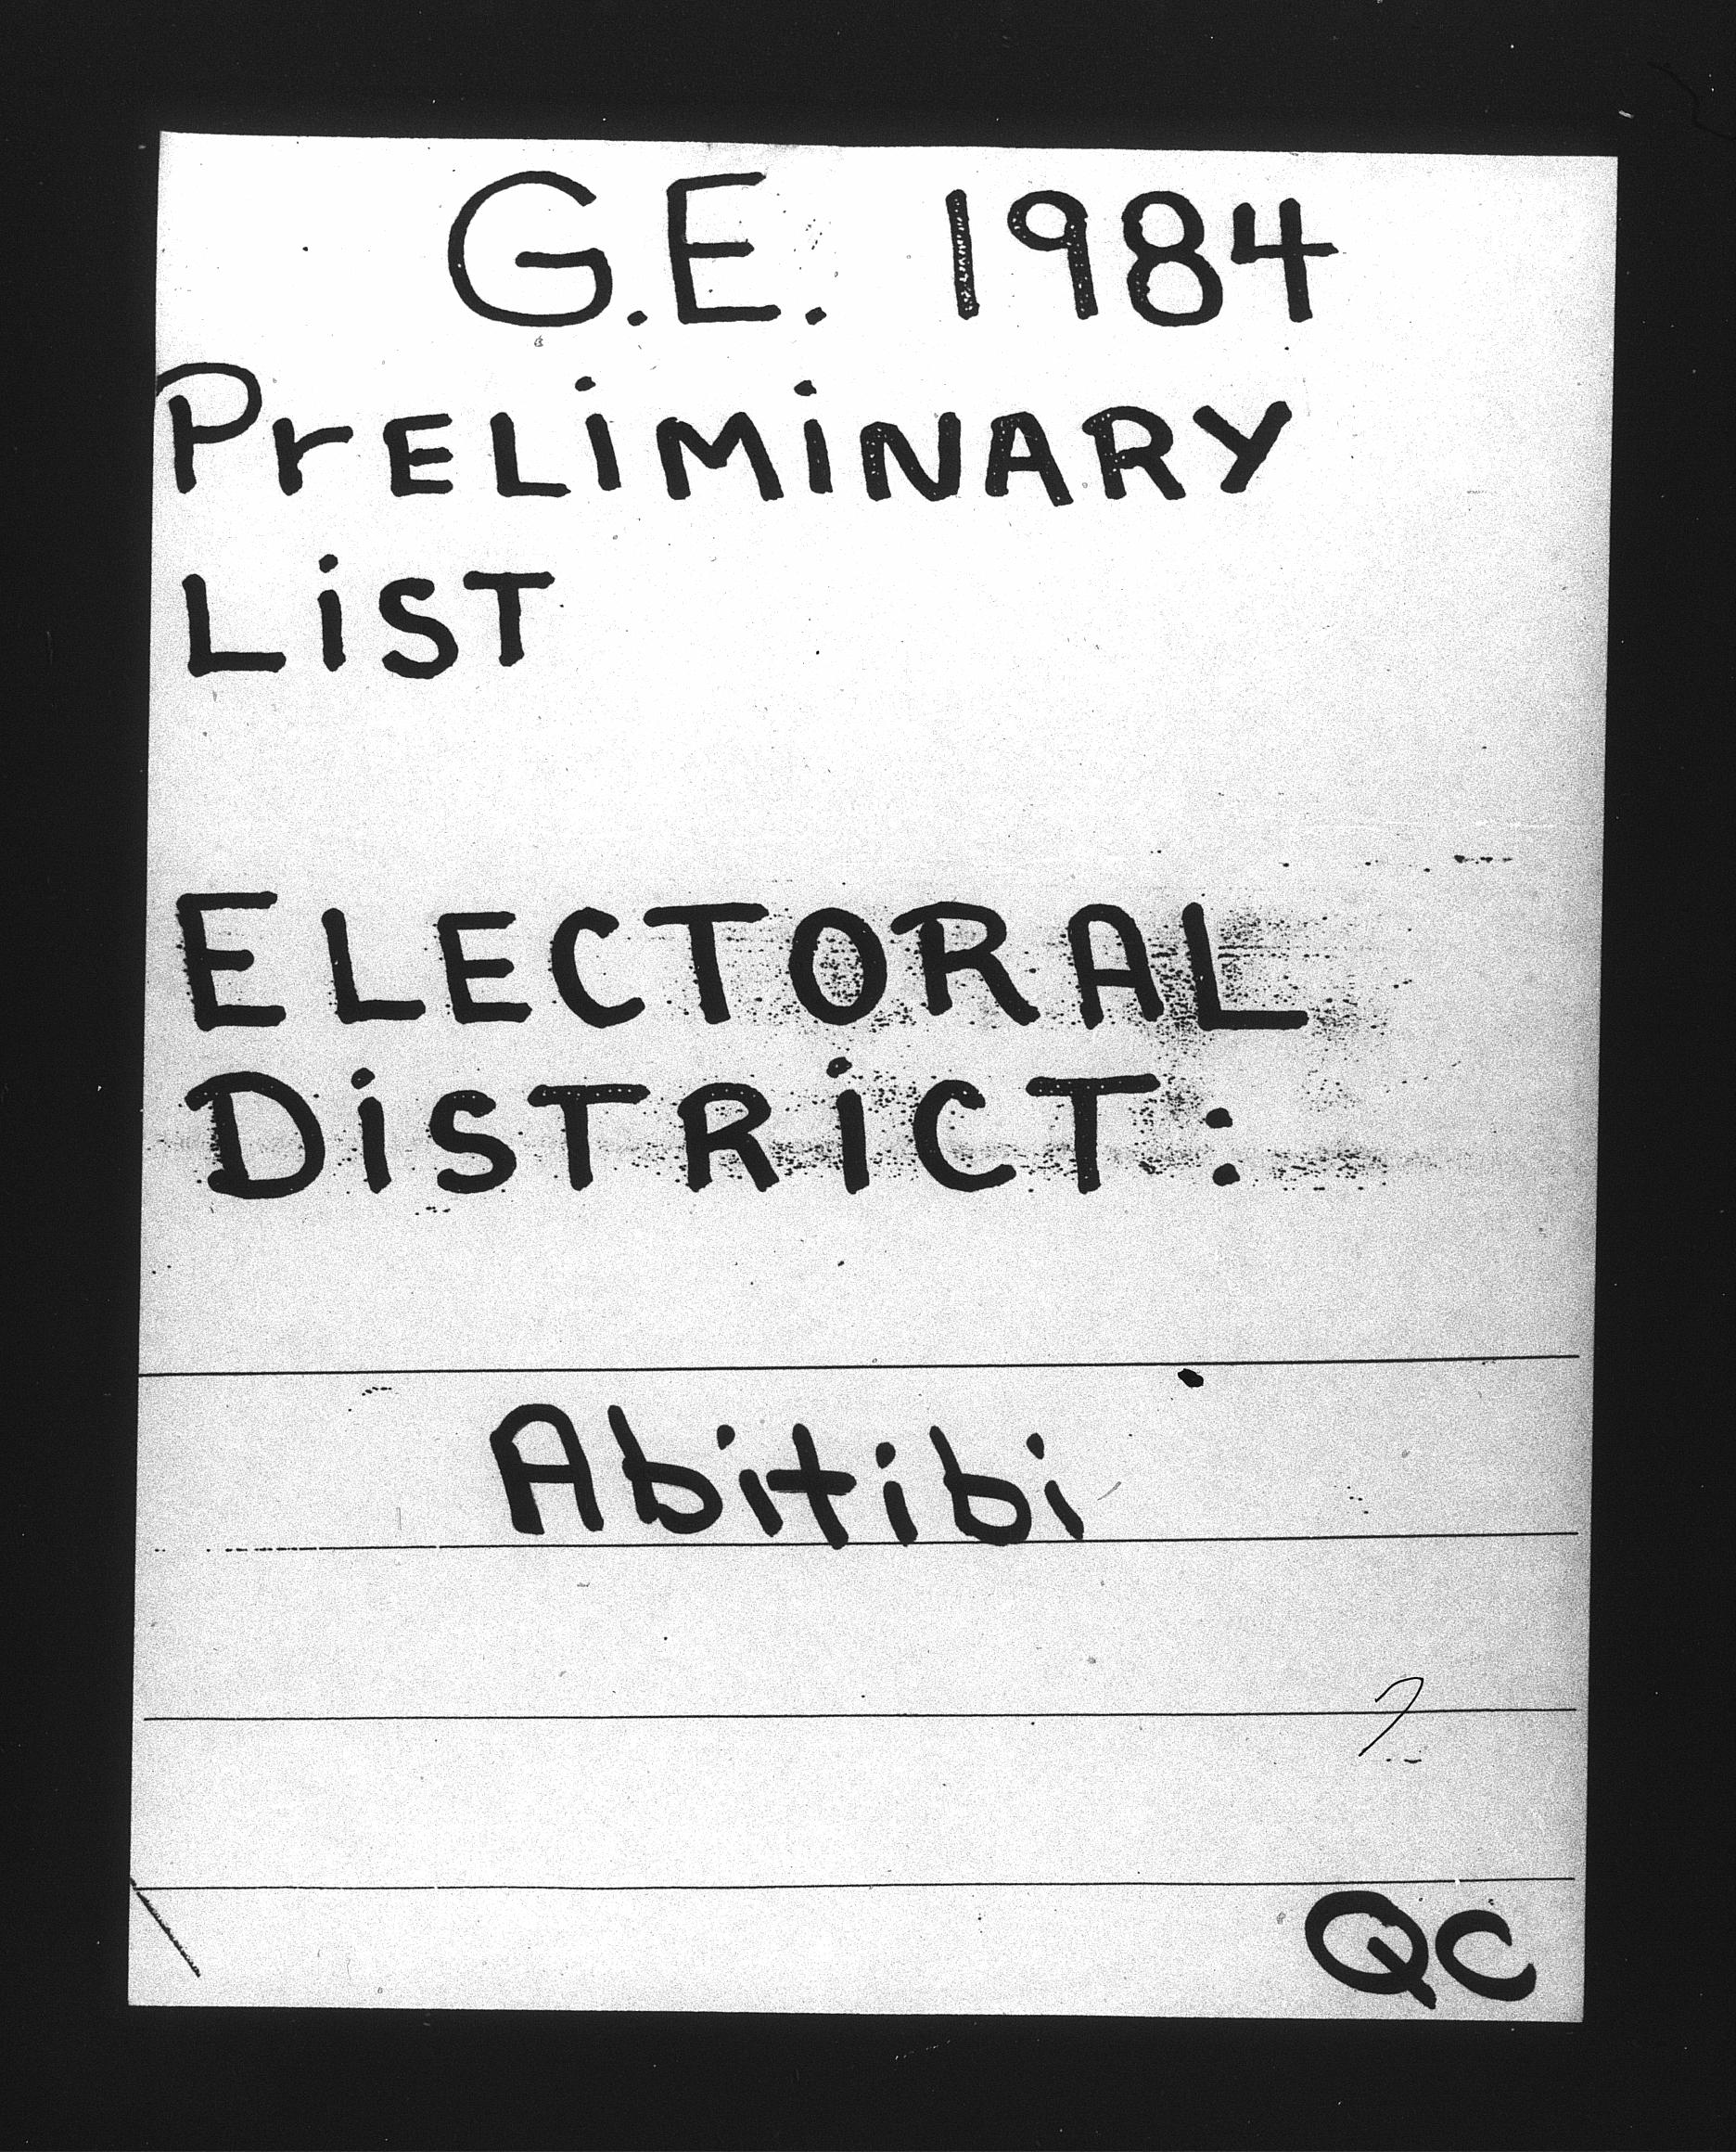 G.E. 1984
PrELiMiNARY
LiST
ELECTORAL
DiSTRiCT:
Abitibi
QC